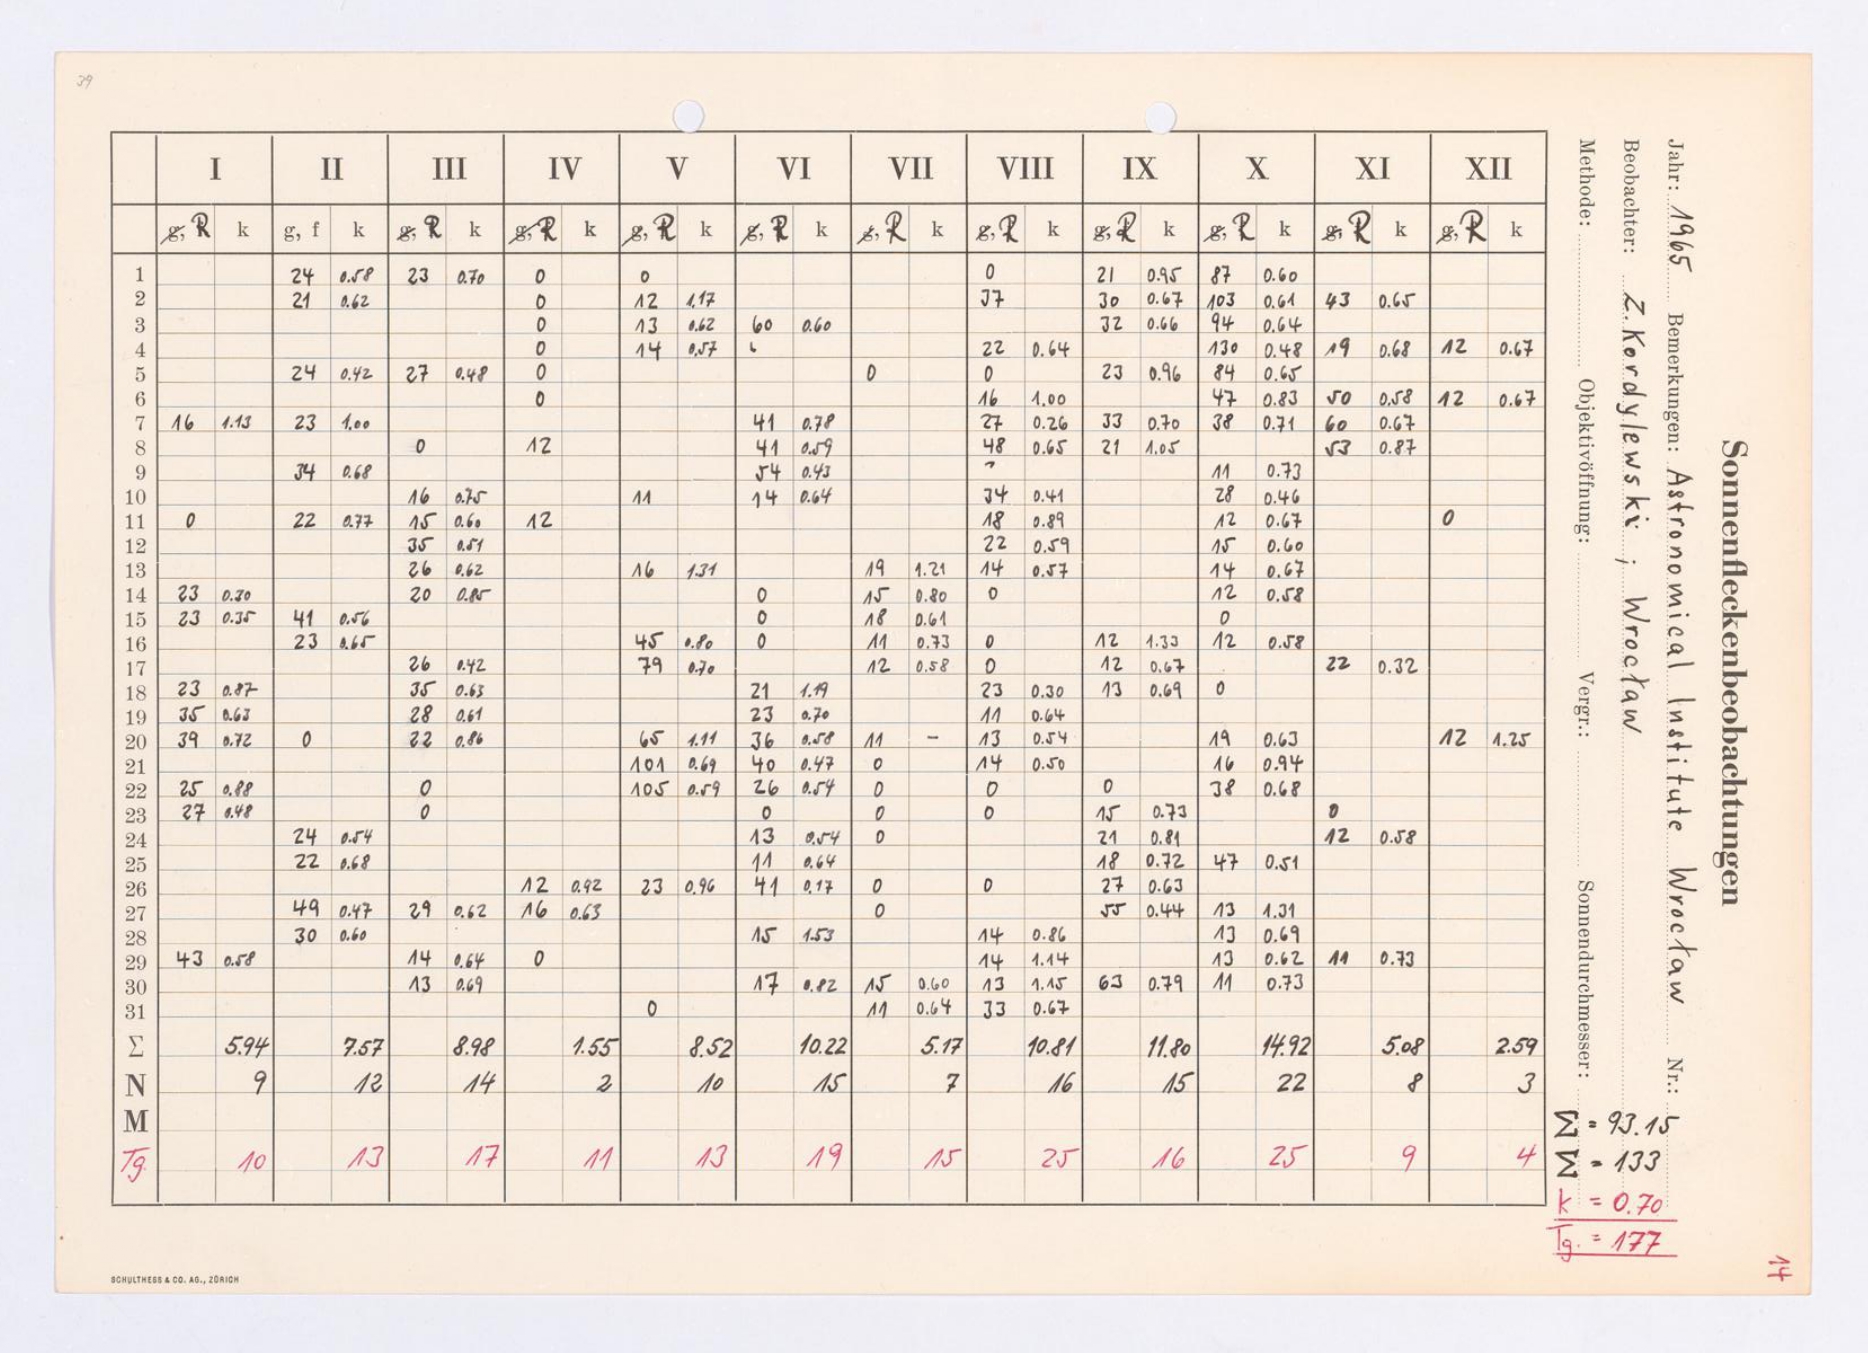 39
Sonnenfleckenbeobachtungen
Jahr: 1965 Bemerkungen: Astronomical Institute Wrocław Nr.:
Beobachter: Z. Kordylewski ; Wrocław
Methode: Objektivöffnung: Vergr.: Sonnendurchmesser:
I II III IV V VI VII VIII IX X XI XII
g, R k g, f k g, R k g, R k g, R k g, R k g, R k g, R k g, R k g, R k g, R k g, R k
1 24 0.58 23 0.70 0 0 0 21 0.95 87 0.60
2 21 0.62 0 12 1.17 37 30 0.67 103 0.61 43 0.65
3 0 13 0.62 60 0.60 32 0.66 94 0.64
4 0 14 0.57 22 0.64 130 0.48 19 0.68 12 0.67
5 24 0.42 27 0.48 0 0 0 23 0.96 84 0.65
6 0 16 1.00 47 0.83 50 0.58 12 0.67
7 16 1.13 23 1.00 41 0.78 27 0.26 33 0.70 38 0.71 60 0.67
8 0 12 41 0.59 48 0.65 21 1.05 53 0.87
9 34 0.68 54 0.43 11 0.73
10 16 0.75 11 14 0.64 34 0.41 28 0.46
11 0 22 0.77 15 0.60 12 18 0.89 12 0.67 0
12 35 0.51 22 0.59 15 0.60
13 26 0.62 16 1.31 19 1.21 14 0.57 14 0.67
14 23 0.30 20 0.85 0 15 0.80 0 12 0.58
15 23 0.35 41 0.56 0 18 0.61 0
16 23 0.65 45 0.80 0 11 0.73 0 12 1.33 12 0.58
17 26 0.42 79 0.70 12 0.58 0 12 0.67 22 0.32
18 23 0.87 35 0.63 21 1.19 23 0.30 13 0.69 0
19 35 0.63 28 0.61 23 0.70 11 0.64
20 39 0.72 0 22 0.86 65 1.11 36 0.58 11 – 13 0.54 19 0.63 12 1.25
21 101 0.69 40 0.47 0 14 0.50 16 0.94
22 25 0.88 0 105 0.59 26 0.54 0 0 0 38 0.68
23 27 0.48 0 0 0 0 15 0.73 0
24 24 0.54 13 0.54 0 21 0.81 12 0.58
25 22 0.68 11 0.64 18 0.72 47 0.51
26 12 0.92 23 0.96 41 0.17 0 0 27 0.63
27 49 0.47 29 0.62 16 0.63 0 55 0.44 13 1.31
28 30 0.60 15 1.53 14 0.86 13 0.69
29 43 0.58 14 0.64 0 14 1.14 13 0.62 11 0.73
30 13 0.69 17 0.82 15 0.60 13 1.15 63 0.79 11 0.73
31 0 11 0.64 33 0.67
Σ 5.94 7.57 8.98 1.55 8.52 10.22 5.17 10.81 11.80 14.92 5.08 2.59
N 9 12 14 2 10 15 7 16 15 22 8 3
M
Tg. 10 13 17 11 13 19 15 25 16 25 9 4
Σ = 93.15
Σ = 133
k = 0.70
Tg. = 177
14
SCHULTHESS & CO. AG., ZÜRICH